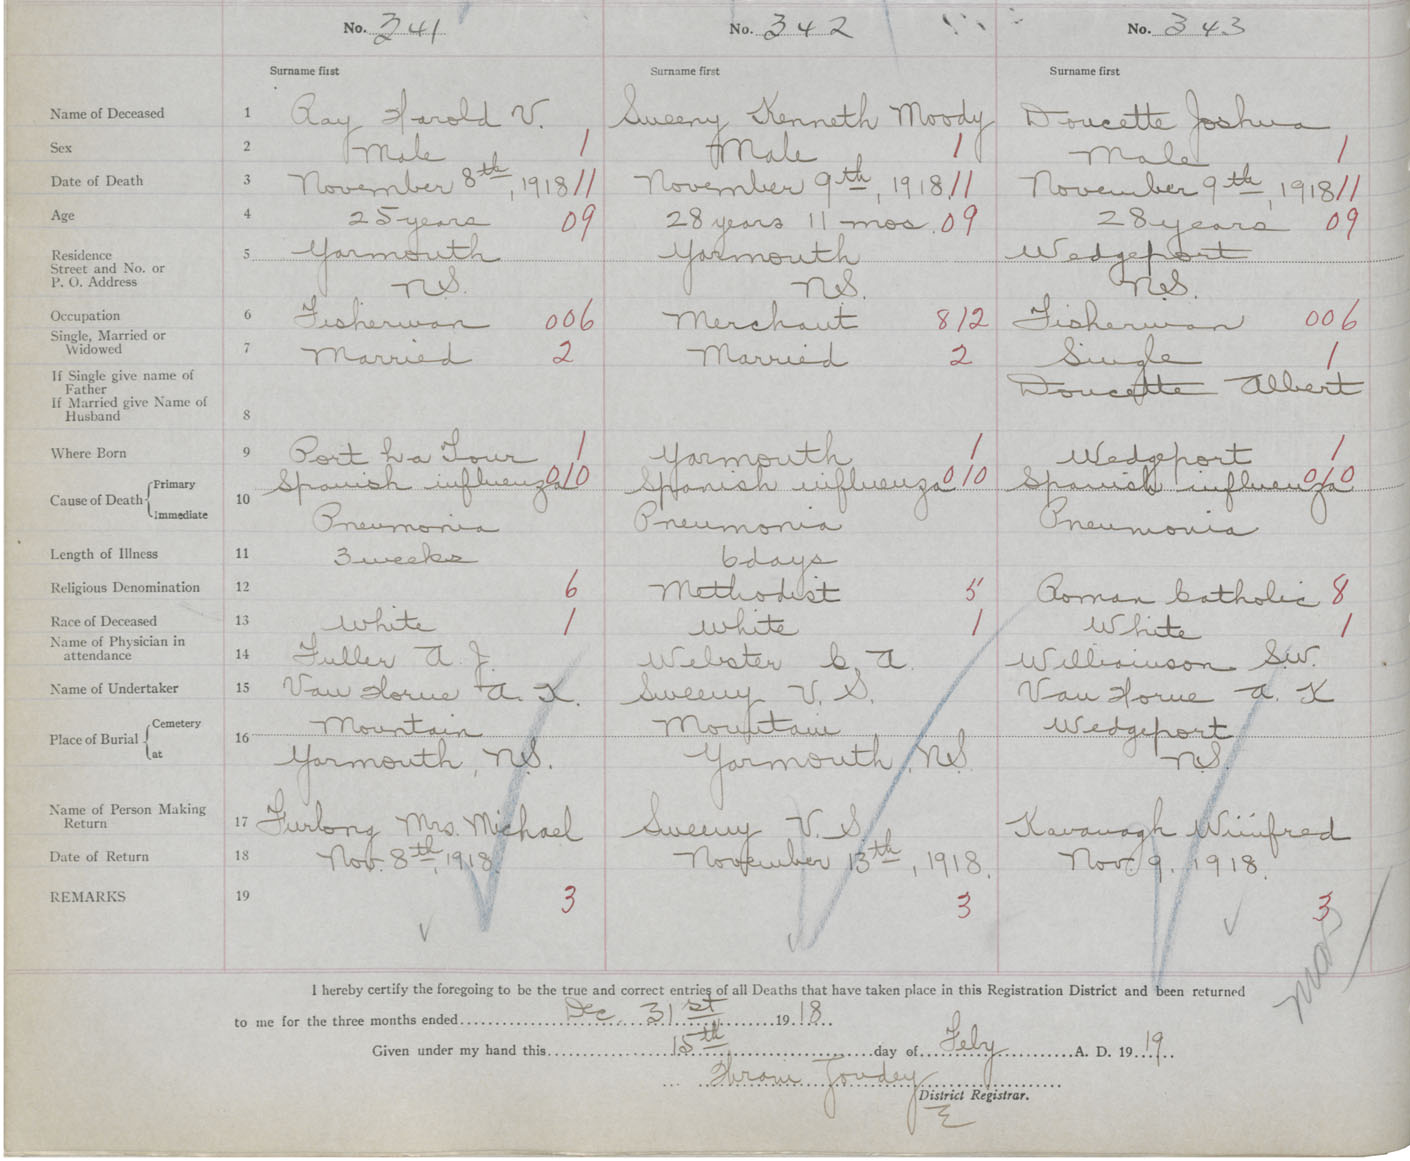 No. 341 No. 342 No. 343
Surname first Surname first Surname first
Name of Deceased 1 Ray Harold V. Sweeny Kenneth Moody Doucette Joshua
Sex 2 Male 1 Male 1 Male 1
Date of Death 3 November 8th, 1918 11 November 9th, 1918 11 November 9th, 1918 11
Age 4 25 years 09 28 years 11 mos. 09 28 years 09
Residence 5 Yarmouth Yarmouth Wedgeport
Street and No. or
P. O. Address N.S. N.S. N.S.
Occupation 6 Fisherman 006 Merchant 812 Fisherman 006
Single, Married or
Widowed 7 Married 2 Married 2 Single 1
If Single give name of
Father Doucette Albert
If Married give Name of
Husband 8
Where Born 9 Port La Tour 1 Yarmouth 1 Wedgeport 1
Cause of Death Primary 10 Spanish influenza 010 Spanish influenza 010 Spanish influenza 010
Immediate Pneumonia Pneumonia Pneumonia
Length of Illness 11 3 weeks 6 days
Religious Denomination 12 6 Methodist 5 Roman Catholic 8
Race of Deceased 13 White 1 White 1 White 1
Name of Physician in
attendance 14 Fuller A. J. Webster C. A. Williamson S.W.
Name of Undertaker 15 Van Horne A. K. Sweeny V. S. Van Horne A. K
Place of Burial Cemetery 16 Mountain Mountain Wedgeport
at Yarmouth, N.S. Yarmouth, N.S. N.S.
Name of Person Making
Return 17 Furlong Mrs. Michael Sweeny V. S. Kavanagh Winifred
Date of Return 18 Nov. 8th, 1918. November 13th, 1918. Nov. 9, 1918.
REMARKS 19 3 3 3
I hereby certify the foregoing to be the true and correct entries of all Deaths that have taken place in this Registration District and been returned
to me for the three months ended Dec. 31st 1918
Given under my hand this 15th day of Feby A. D. 1919
District Registrar.